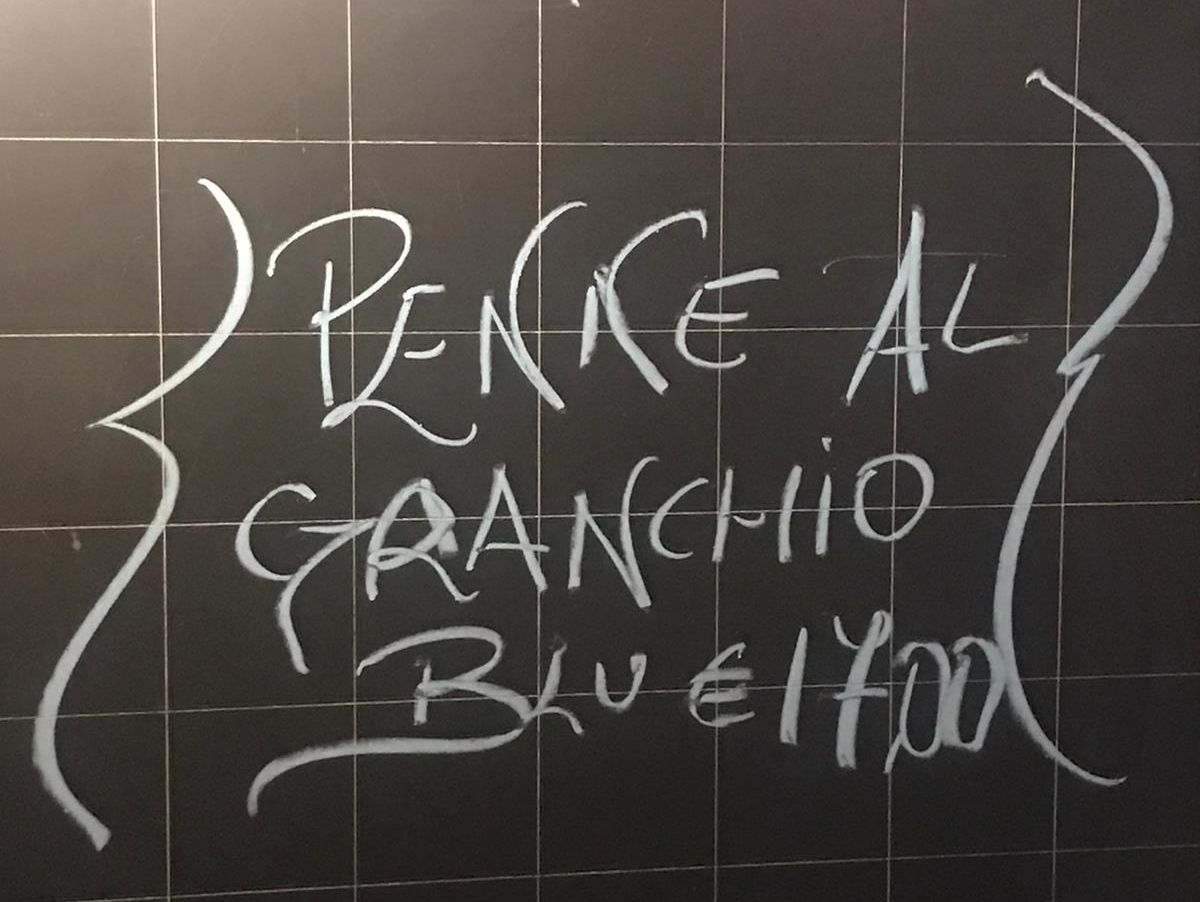 PENNE AL
GRANCHiO
BLU €17,00